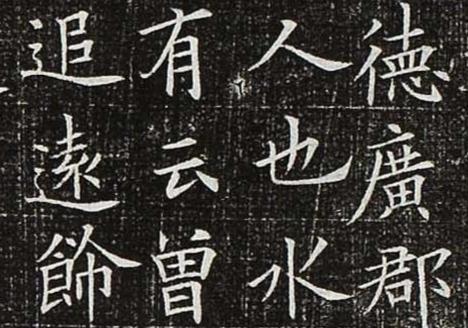 德廣郡
人也水
有云曾
追遠飾